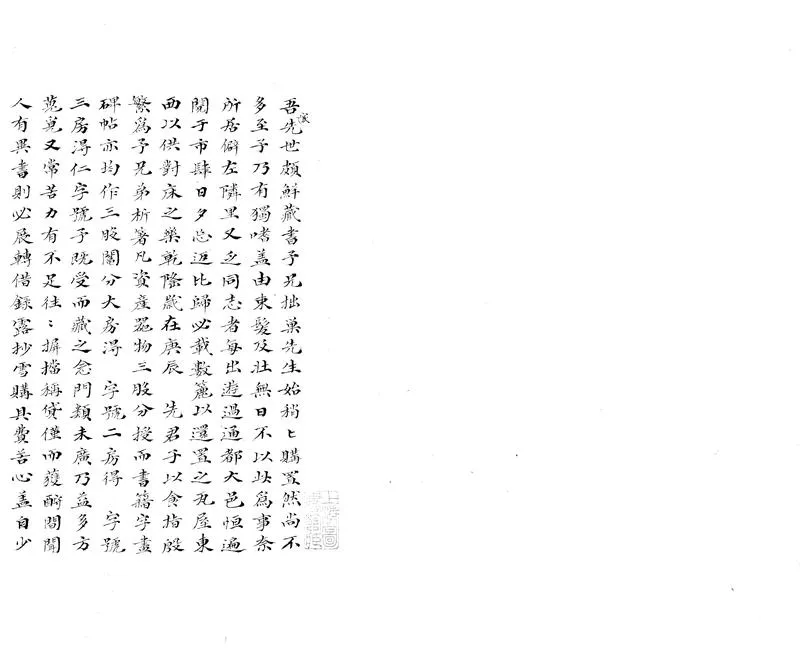 吾先世頗鮮藏書予兄拙巢先生始稍〻購置然尚不
多至予乃有獨嗜盖由束髮及壯無日不以此爲事奈
所居僻左隣里又乏同志者每出遊過通都大邑恒遍
閱于市肆日夕忘返比歸必載數簏以還置之丸屋東
西以供對床之樂乾隆歲在庚辰 先君子以食指殷
繁爲予兄弟析箸凡資産器物三股分授而書籍字畫
碑帖亦均作三股鬮分大房得 字號二房得 字號
三房得仁字號予既受而藏之念門類未廣乃益多方
蒐覓又常苦力有不足往〻摒擋稱貸僅而獲酧間聞
人有異書則必展轉借錄露抄雪購具費苦心盖自少